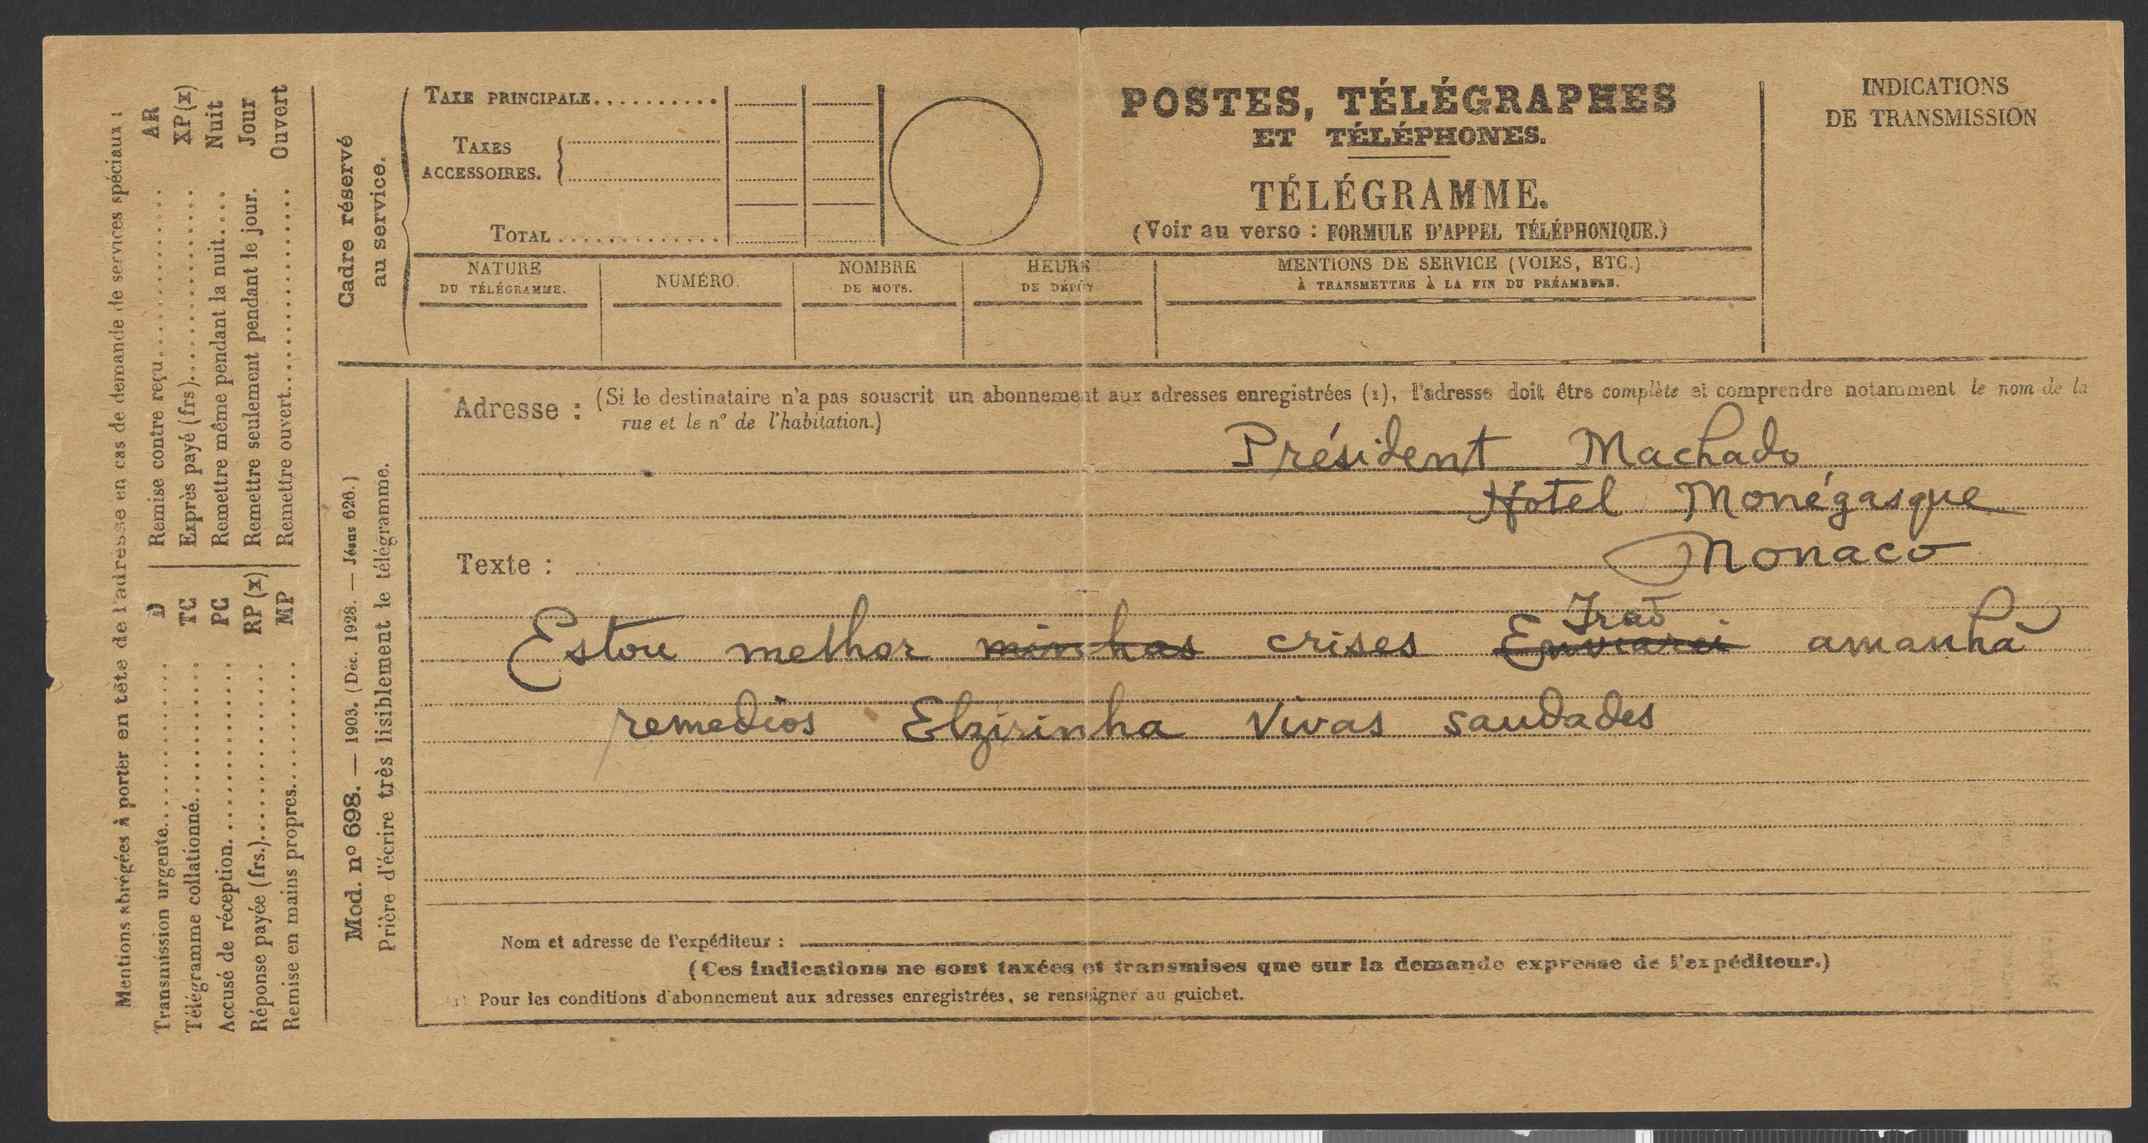 Mentions abrégées à porter en tête de l'adresse en cas de demande de services spéciaux :
Transmission urgente............ D
Télégramme collationné........... TC
Accusé de réception.............. PC
Réponse payée (frs.)............. RP (x)
Remise en mains propres.......... MP
Remise contre reçu............... AR
Exprès payé (frs)................ XP (x)
Remettre même pendant la nuit.... Nuit
Remettre seulement pendant le jour. Jour
Remettre ouvert.................. Ouvert
Mod. nº 698. — 1903. (Déc. 1928. — Jésus 626.)
Prière d'écrire très lisiblement le télégramme.
Cadre réservé
au service.
TAXE PRINCIPALE..........
TAXES
ACCESSOIRES.
TOTAL.............
POSTES, TÉLÉGRAPHES
ET TÉLÉPHONES.
TÉLÉGRAMME.
(Voir au verso : FORMULE D'APPEL TÉLÉPHONIQUE.)
INDICATIONS
DE TRANSMISSION
NATURE
DU TÉLÉGRAMME.
NUMÉRO.
NOMBRE
DE MOTS.
HEURE
DE DÉPÔT
MENTIONS DE SERVICE (VOIES, ETC.)
À TRANSMETTRE À LA FIN DU PRÉAMBULE.
Adresse : (Si le destinataire n'a pas souscrit un abonnement aux adresses enregistrées (1), l'adresse doit être complète et comprendre notamment le nom de la
rue et le nº de l'habitation.)
Président Machado
Hotel Monégasque
Monaco
Texte :
Irão
Estou melhor minhas crises Enviarei amanhã
remedios Elzirinha Vivas saudades
Nom et adresse de l'expéditeur :
(Ces indications ne sont taxées et transmises que sur la demande expresse de l'expéditeur.)
(1) Pour les conditions d'abonnement aux adresses enregistrées, se renseigner au guichet.